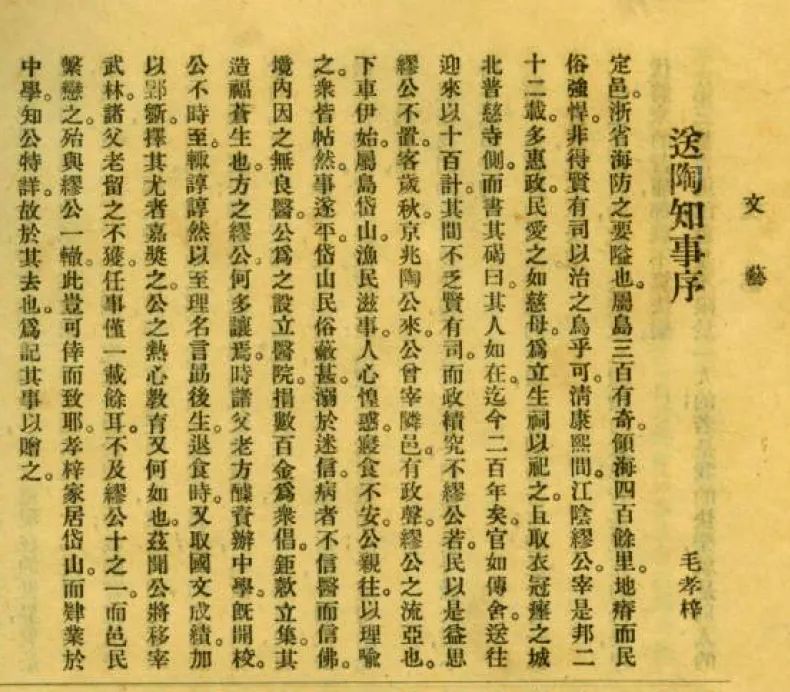 文藝
送陶知事序
毛孝梓
定邑。浙省海防之要隘也。屬島三百有奇。領海四百餘里。地瘠而民
俗強悍。非得賢有司以治之烏乎可。淸康熙間。江陰繆公。宰是邦二
十二載。多惠政。民愛之如慈母。爲立生祠以祀之。且取衣冠瘞之城
北普慈寺側。而書其碣曰。其人如在。迄今二百年矣。官如傳舍。送往
迎來以十百計。其間不乏賢有司。而政績究不繆公若。民以是益思
繆公不置。客歲秋。京兆陶公來。公曾宰隣邑。有政聲。繆公之流亞也。
下車伊始。屬島岱山。漁民滋事。人心惶惑。寢食不安。公親往。以理喩
之。衆皆帖然。事遂平。岱山民俗蔽甚。溺於迷信。病者不信醫而信佛。
境內因之無良醫。公爲之設立醫院。捐數百金爲衆倡。鉅欵立集。其
造福蒼生也。方之繆公。何多讓焉。時諸父老方醵資辦中學。旣開校。
公不時至。輙諄諄然以至理名言勗後生。退食時。又取國文成績。加
以郢斲。擇其尤者嘉奬之。公之熱心敎育又何如也。茲聞公將移宰
武林。諸父老留之不獲。任事僅一載餘耳。不及繆公十之一。而邑民
繫戀之。殆與繆公一轍。此豈可倖而致耶。孝梓家居岱山。而肄業於
中學。知公特詳。故於其去也。爲記其事以贈之。